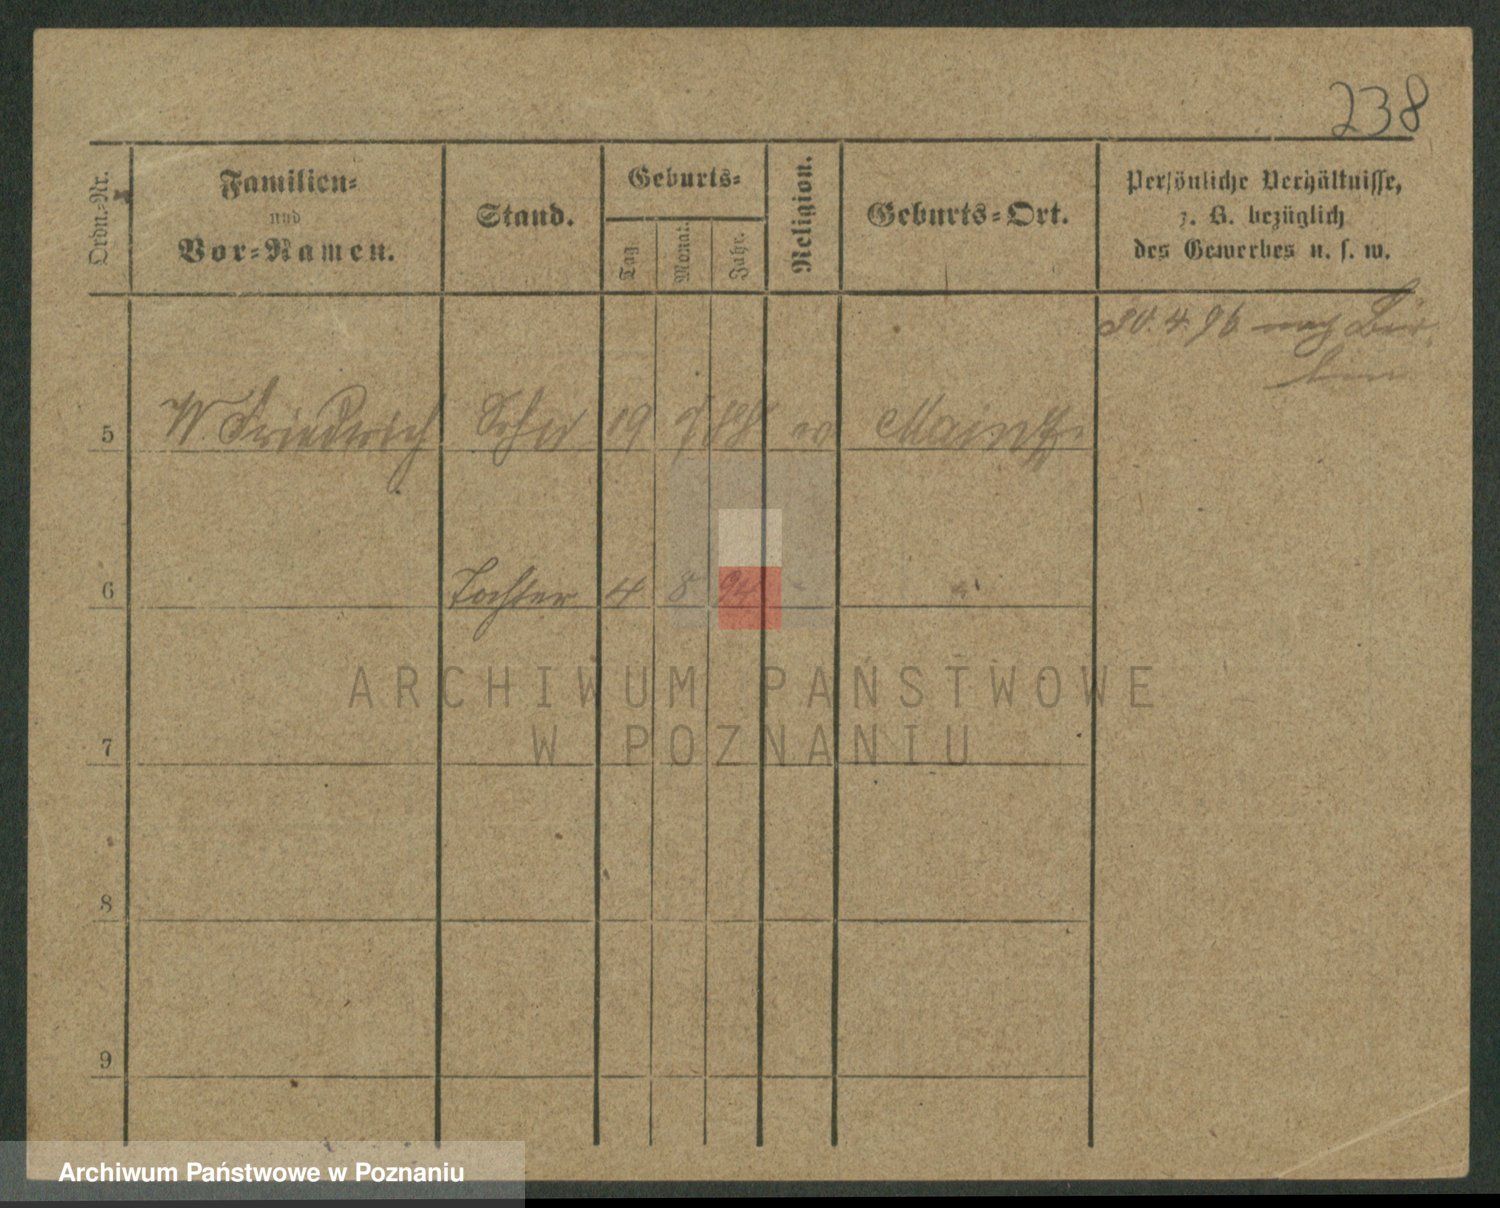 238
Ordn.-Nr.
Familien-
und
Vor-Namen.
Stand.
Geburts-
Tag.
Monat.
Jahr.
Religion.
Geburts-Ort.
Persönliche Verhältnisse,
z. B. bezüglich
des Gewerbes u. s. w.
4.96 nach
5 W. Friedrich Sohn 19 88 ev Maintz
6 Tochter 4 8 94
ARCHIWUM PAŃSTWOWE
W POZNANIU
7
8
9
Archiwum Państwowe w Poznaniu